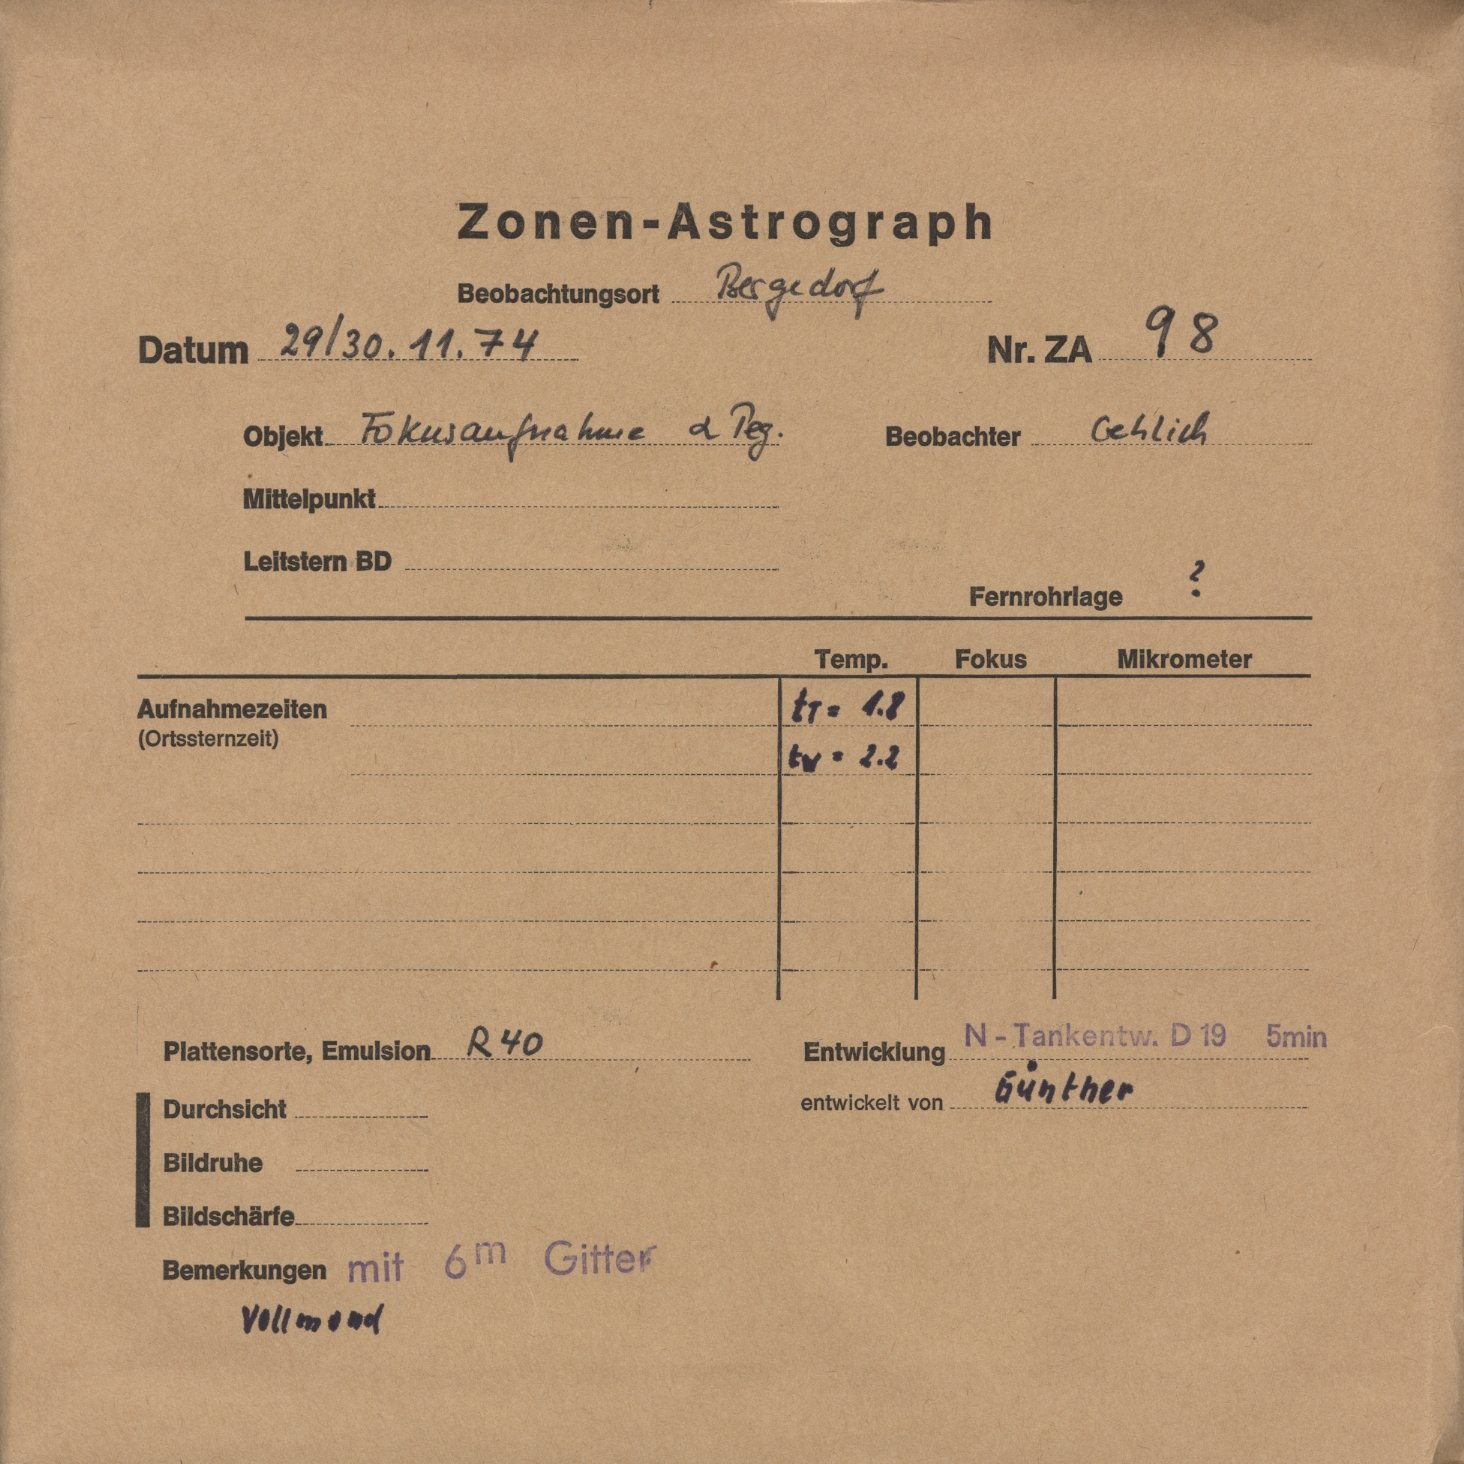 Zonen-Astrograph
Beobachtungsort Bergedorf
Datum 29/30.11.74 Nr. ZA 98
Objekt Fokusaufnahme α Peg. Beobachter Gehlich
Mittelpunkt
Leitstern BD
Fernrohrlage ?
Temp. Fokus Mikrometer
Aufnahmezeiten tT = 1.8
(Ortssternzeit)
tW = 2.2
Plattensorte, Emulsion R40 Entwicklung N-Tankentw. D 19 5min
Durchsicht entwickelt von Günther
Bildruhe
Bildschärfe
Bemerkungen mit 6m Gitter
Vollmond